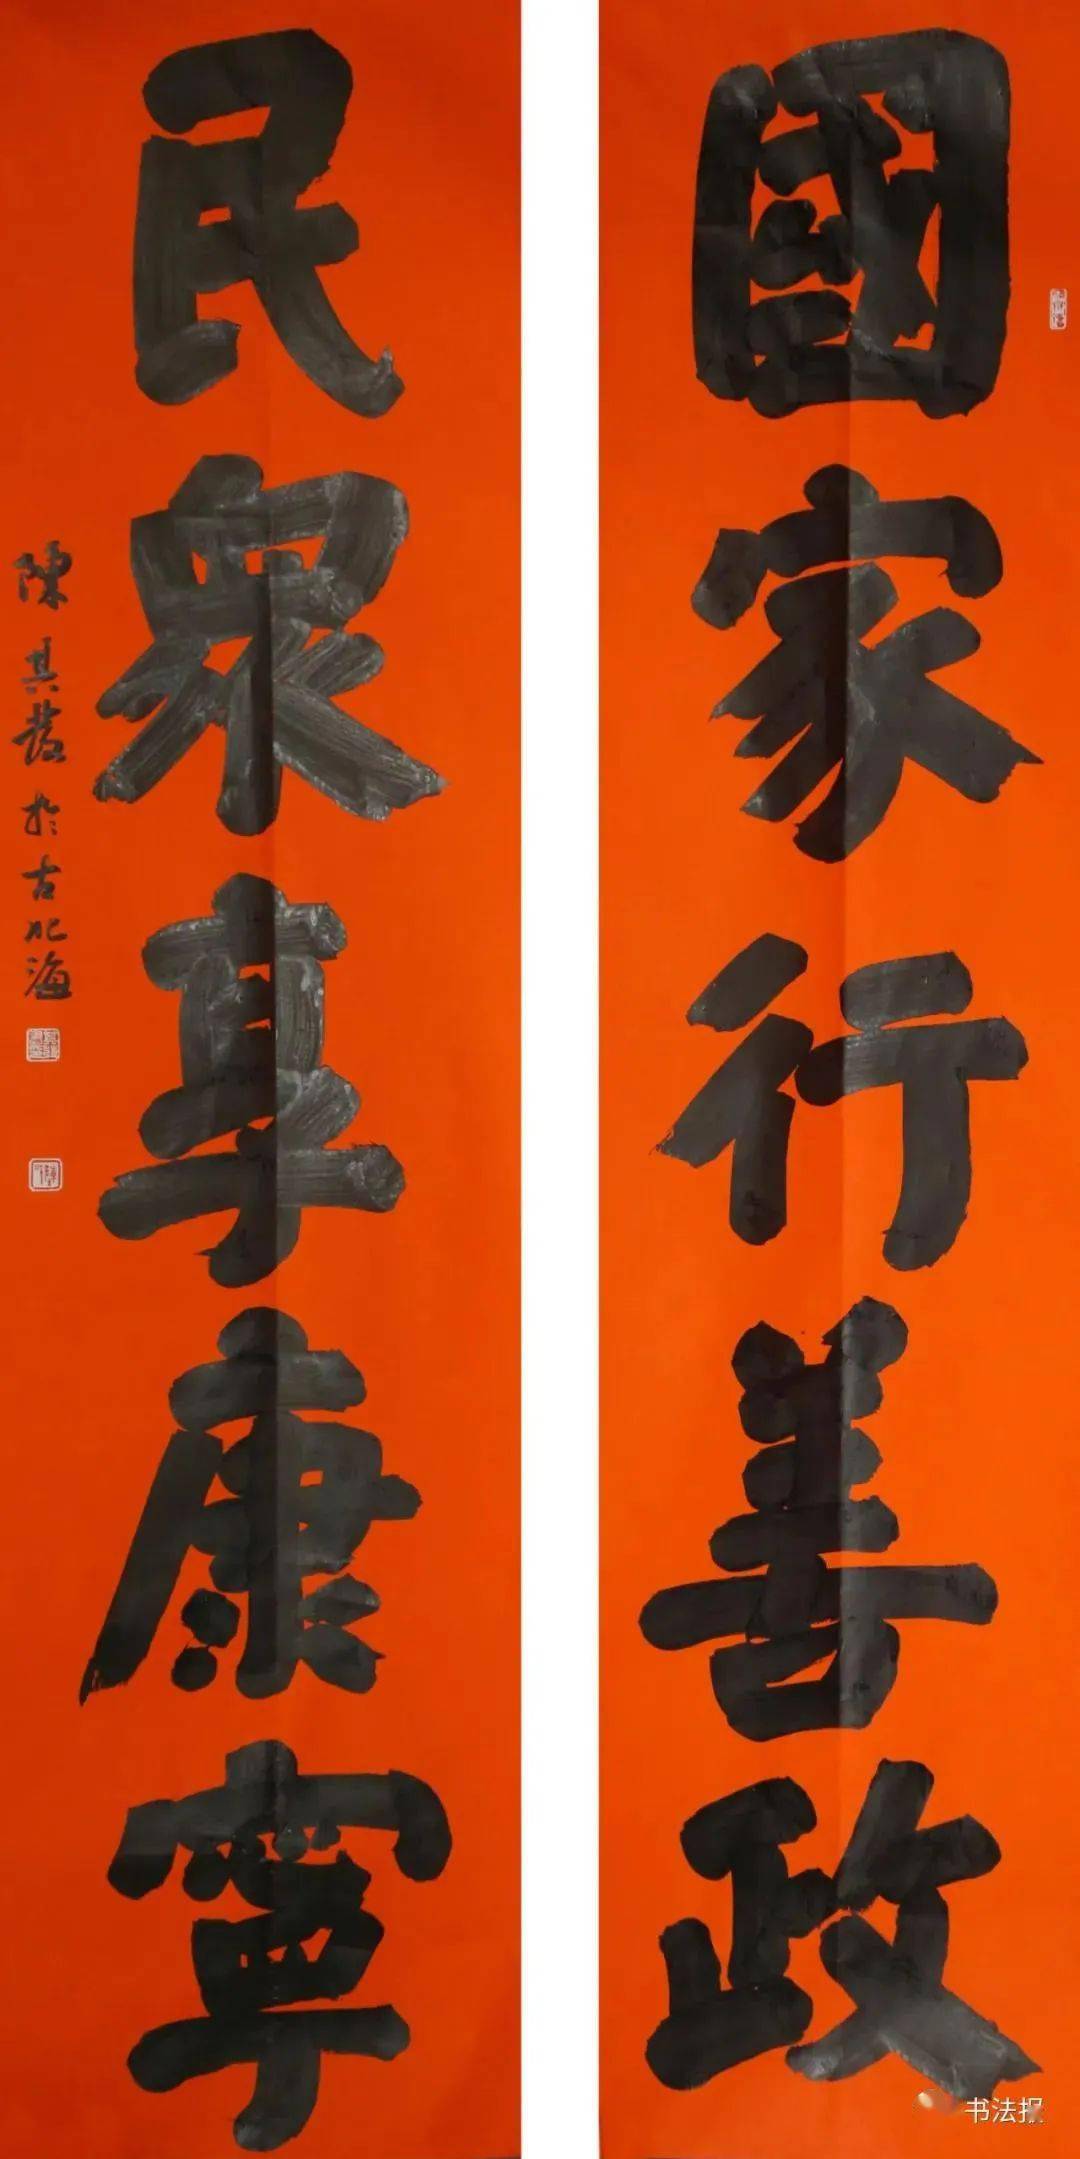 國家行善政
民衆享康寧
陳其發於古北海
书法报